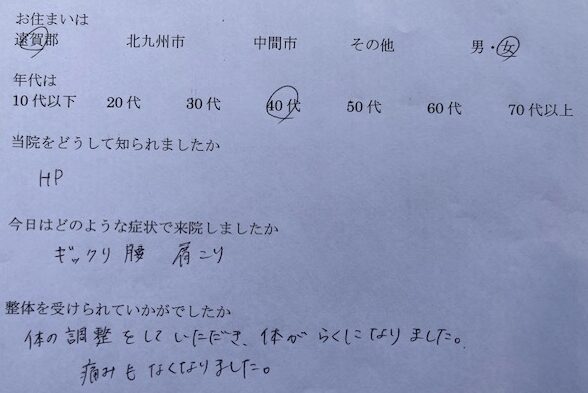 お住まいは
遠賀郡 北九州市 中間市 その他 男・女
年代は
10代以下 20代 30代 40代 50代 60代 70代以上
当院をどうして知られましたか
HP
今日はどのような症状で来院しましたか
ギックリ腰 肩こり
整体を受けられていかがでしたか
体の調整をしていただき、体がらくになりました。
痛みもなくなりました。